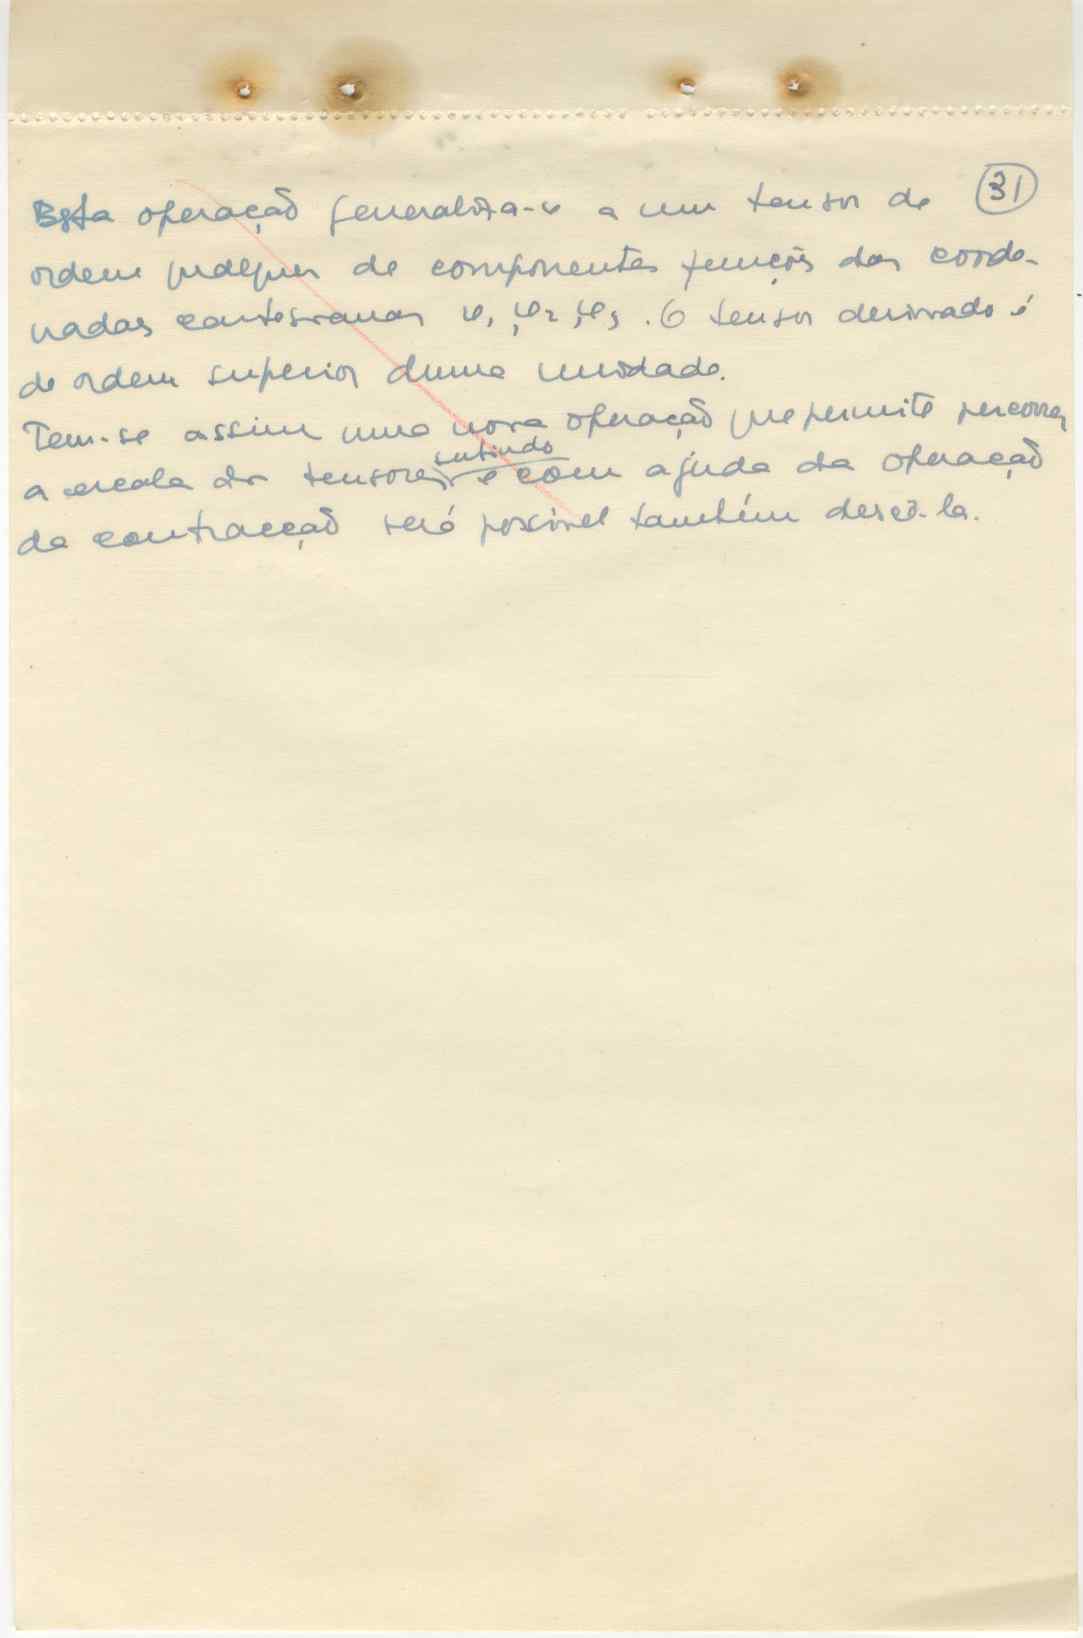 Esta operação generaliza-se a um tensor de (31)
ordem qualquer de componentes funções das coorde-
nadas cartesianas x₁, x₂, x₃. O tensor derivado é
de ordem superior duma unidade.
Tem-se assim uma nova operação que permite percorrer
subindo
a escala dos tensores, e com ajuda da operação
da contracção será possível também descê-la.